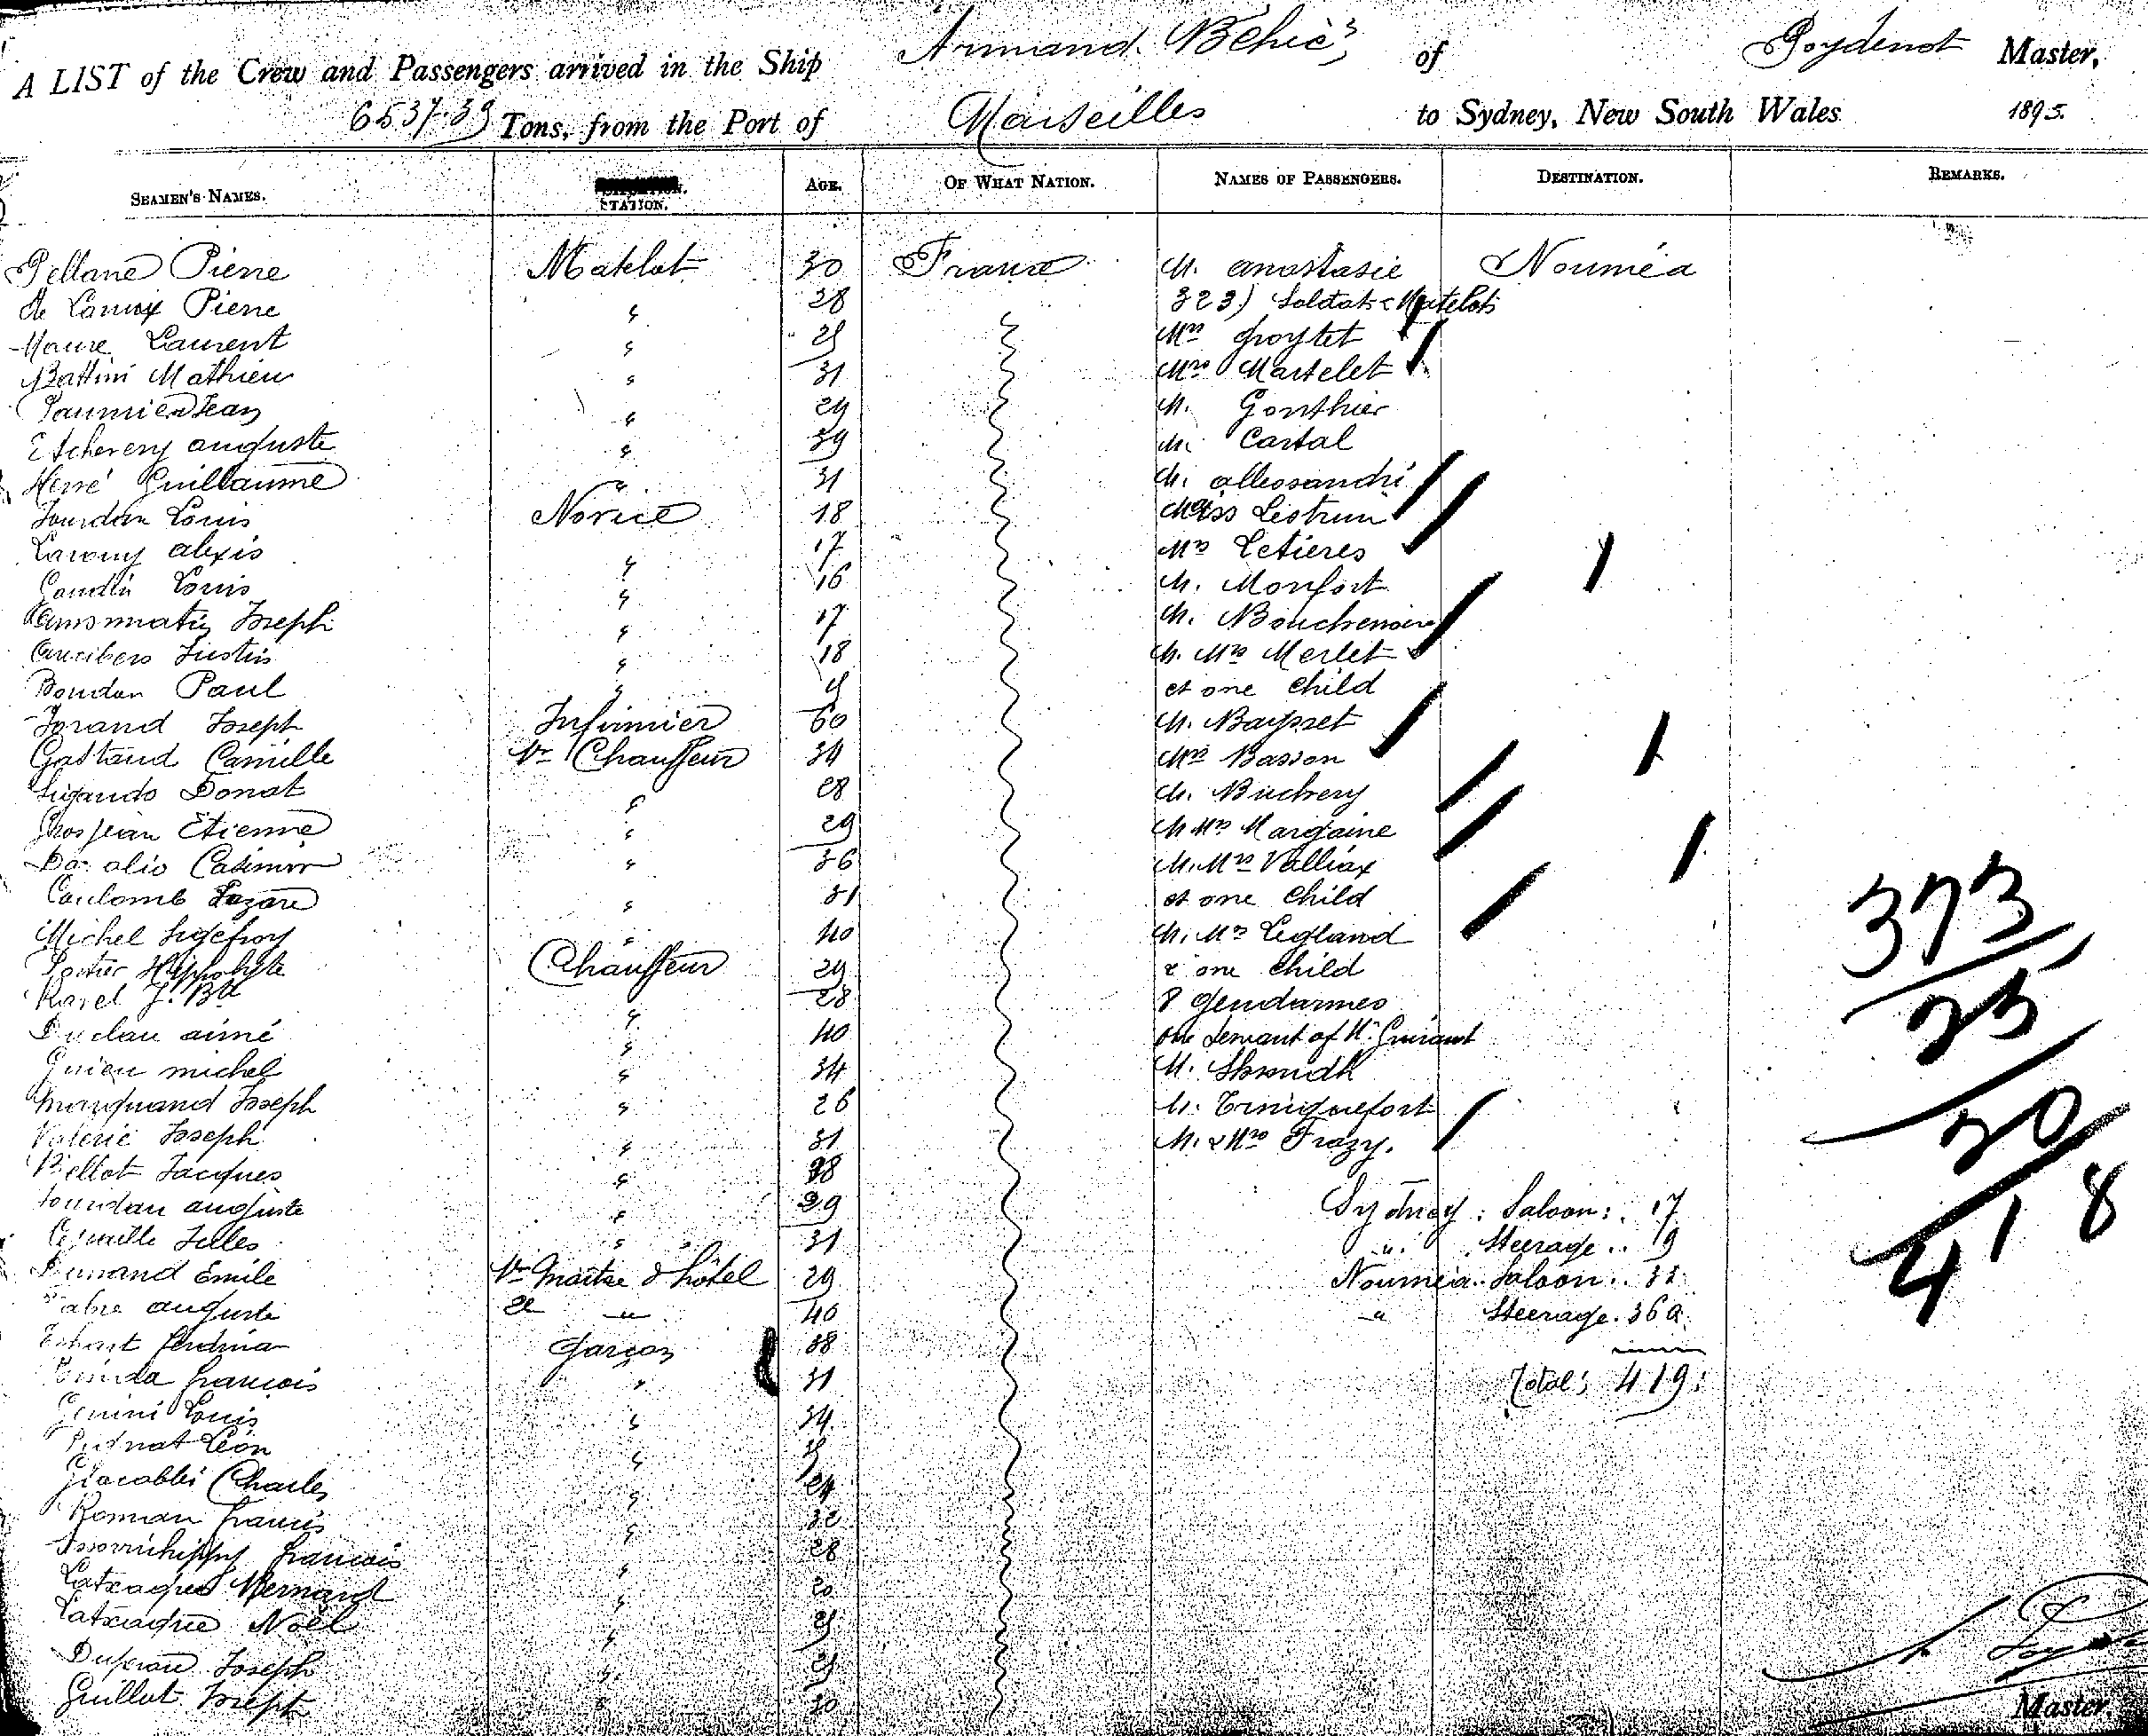 A LIST of the Crew and Passengers arrived in the Ship Armand Béhic of Poydenot Master,
6537.39 Tons, from the Port of Marseilles to Sydney, New South Wales 1895.
SEAMEN'S NAMES. STATION. AGE. OF WHAT NATION. NAMES OF PASSENGERS. DESTINATION. REMARKS.
Pellane Pierre Matelot 30 France M. Anastasie Nouméa
Pierre " 28 323) Soldats & Matelots
Maure Laurent " Mrs
Battini Mathieu " 31 Mrs Martelet
Paumier Jean " 29 M. Gonthier
Etchevery Auguste " 39 M. Cartal
Hervé Guillaume " 31 M. Allessandri
Jourdan Louis Novice 18 Miss Lestrun
Alexis 17 Mrs Letieres
Gaudin Louis " 16 M. Monfort
Joseph " 17 M.
Justin " 18 M. Mrs Merlet
Boudon Paul " et one child
Jorand Joseph Infirmier 60 M. Baysset
Gastaud Camille Chauffeur 34 Mrs Basson
Donat " 28 M. Buchery
Grosjean Etienne " 29 M Mrs Margaine
Casimir " 36 M. Mrs Valliax
Coulomb Lazare " 31 et one child
Michel " 40 M. Mrs Legland
Hippolyte Chauffeur 29 & one child
Ravel J. Bte " 28 8 Gendarmes
Duclau Aimé " 40 one servant of Mr
Guieu Michel " 34 M.
Marquand Joseph " 26 M.
Valerie Joseph " 31 M. & Mrs Frazy.
Bellot Jacques " 38
Jourdan Auguste " 29 Sydney: Saloon: 17
Jules " 31 " Steerage.. 19
Durand Emile Maitre d'hôtel 29 Nouméa. Saloon..
Fabre Auguste 2e " 40 " Steerage.
Garçon 38
François " 31 Total: 419:
Gemini Louis " 34
Léon "
Giacobbi Charles " 24
Roman Francis " 32
François " 28
Latxague Bernard " 20
Latxague Noël "
Duprau Joseph "
Guillot Joseph " 30
373
25
20
418
Master.